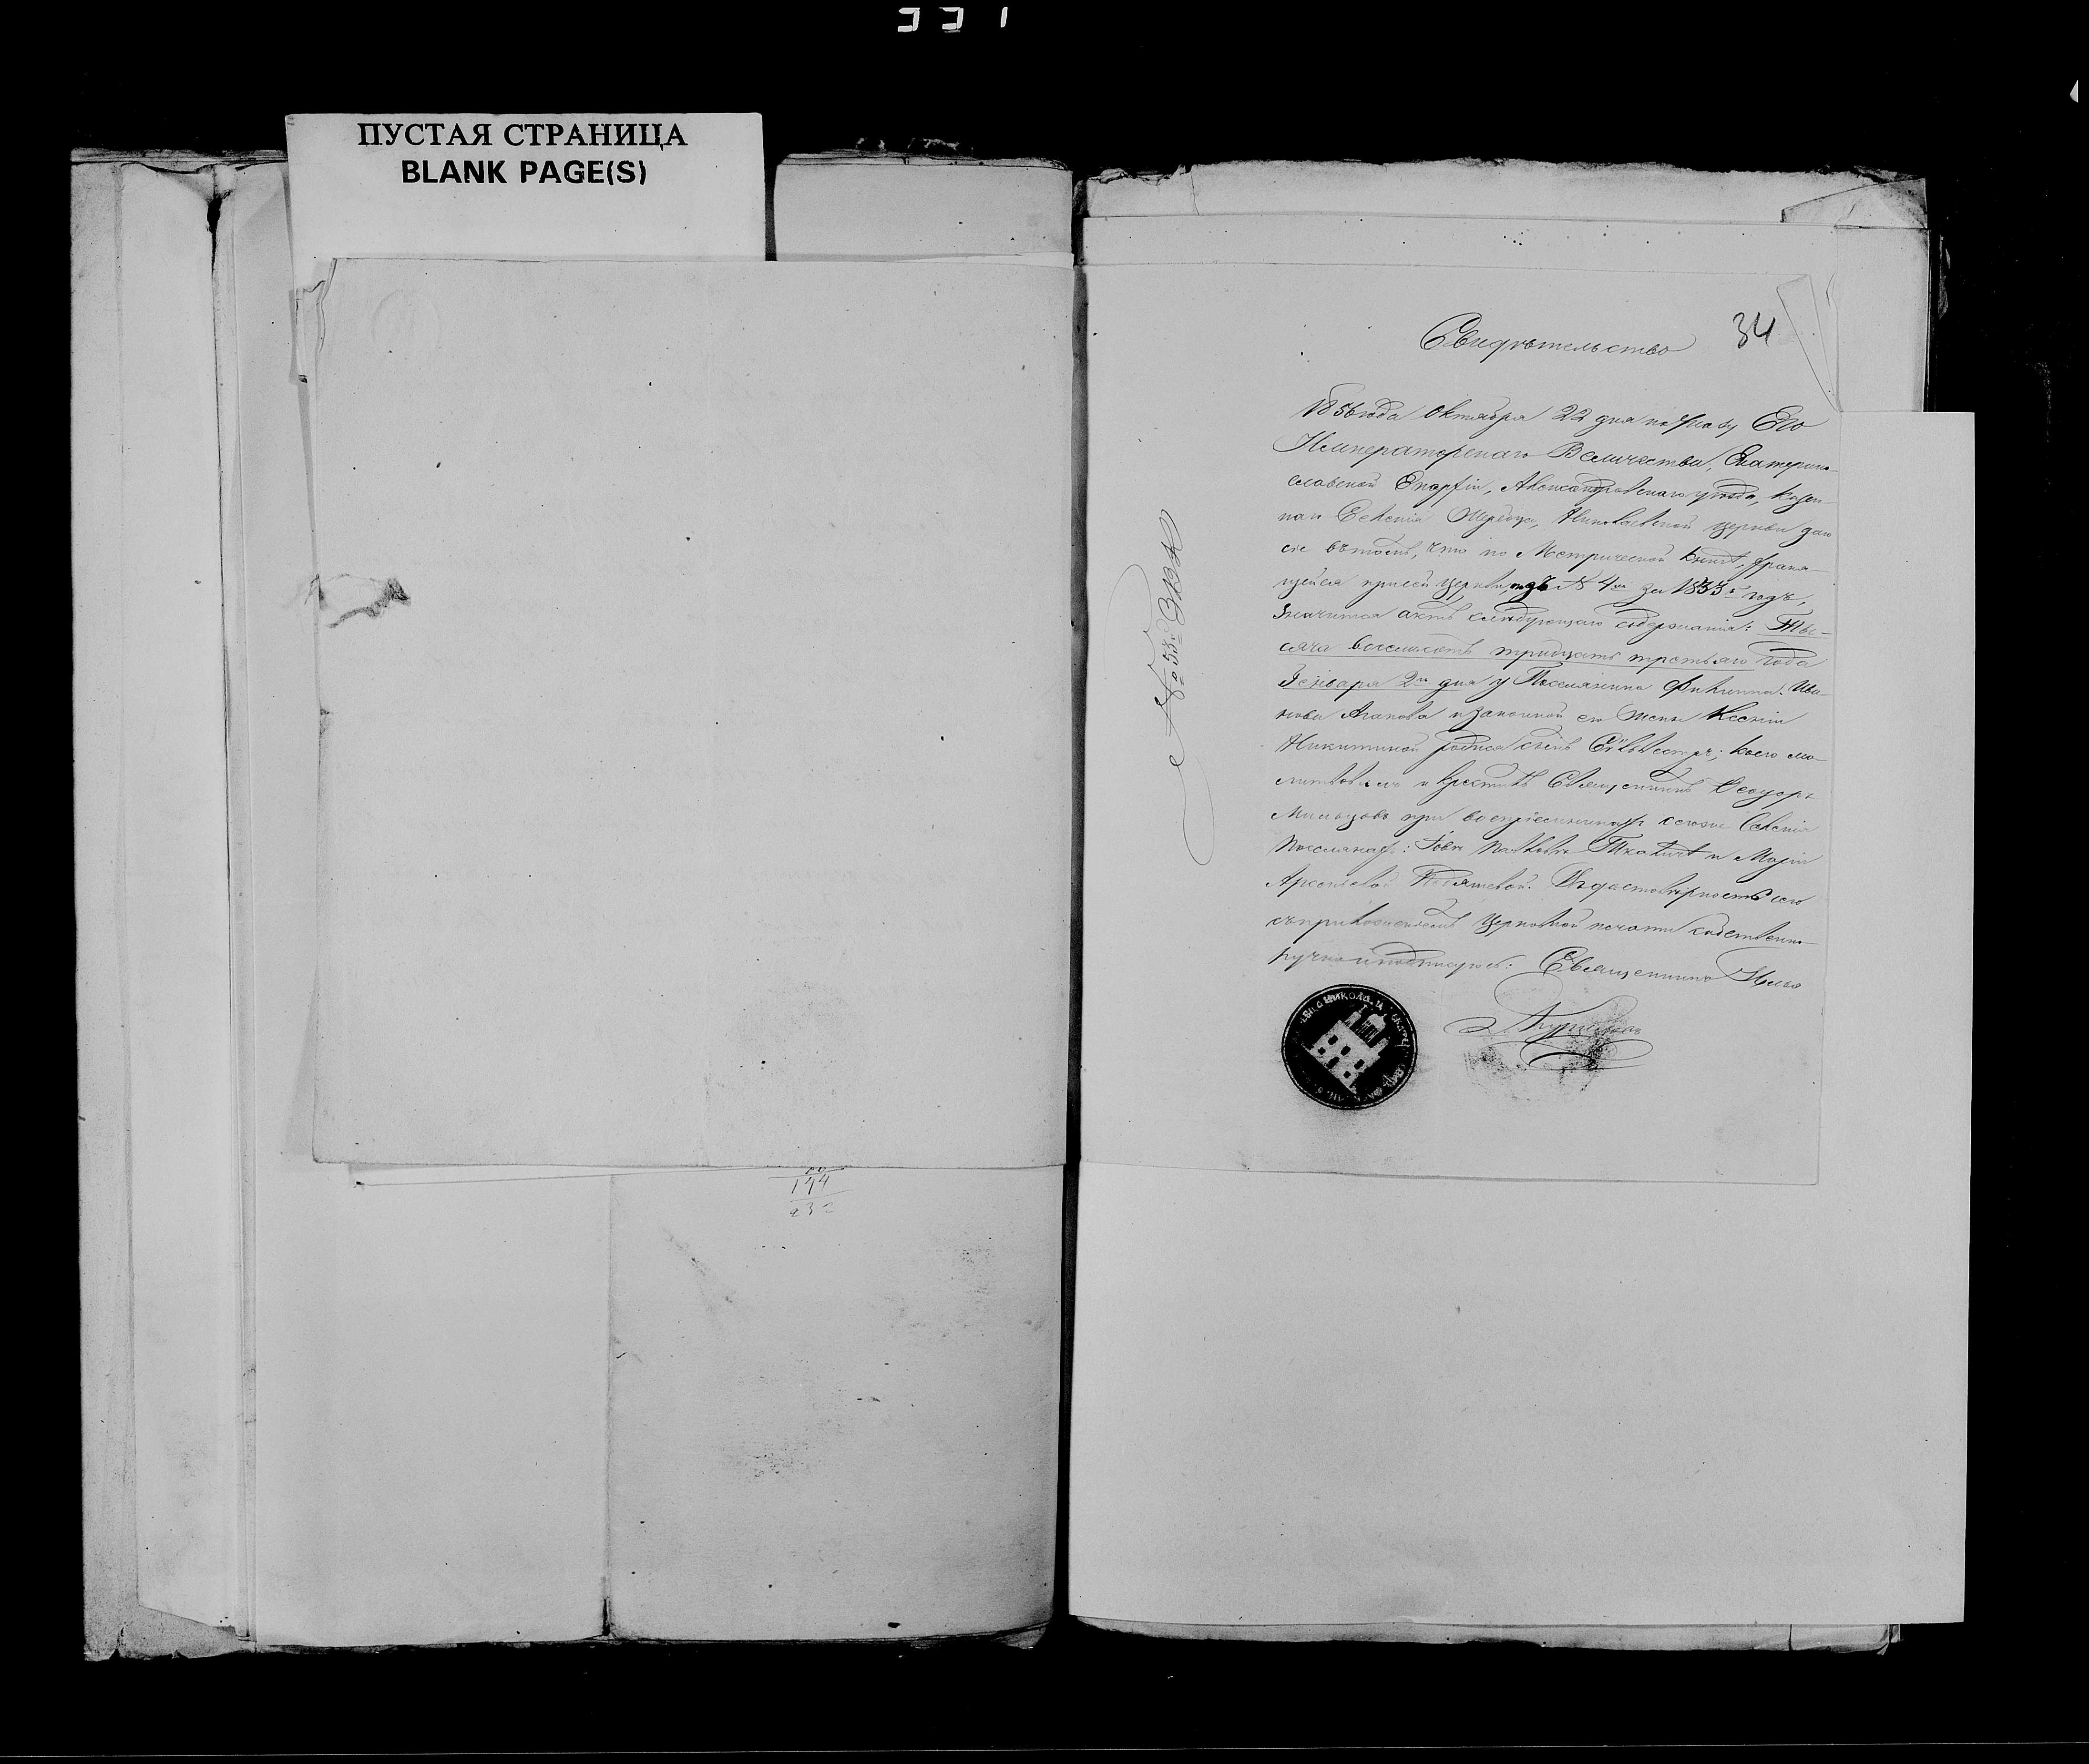 331
ПУСТАЯ СТРАНИЦА
BLANK PAGE(S)
144
232
34
Свидѣтельство
1856 года Октября 22 дня по Указу Его
Императорскаго Величества, Екатерино-
славской Епархіи, Александровскаго уѣзда, казен-
наго Селенія Николаевской церкви дано
сіе въ томъ, что по Метрической книгѣ, храня-
щейся при сей церкви, подъ № 4мъ за 1833й годъ,
значится актъ слѣдующаго содержанія: Ты-
сяча восемьсотъ тридцать третьяго года
Генваря 2го дня у Поселянина Филиппа Ива-
нова Агапова и законной его жены Ксеніи
Никитиной родился сынъ Сильвестръ; коего мо-
литвовалъ и крестилъ Священникъ Ѳеодоръ
при воспріемникахъ селенія
Поселянахъ: Іовѣ и Маріи
Въ достовѣрность сего
съ приложеніемъ Церковной печати собственно-
ручно и подписуюсь: Священникъ Илья
№ 53й